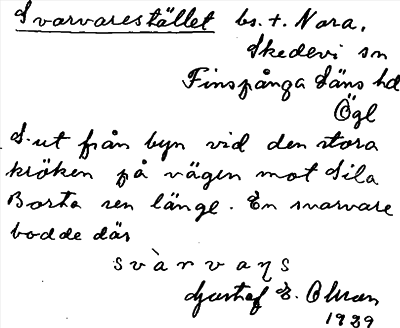 Svarvarestället bs. t. Nora,
Skedevi sn
Finspånga läns hd
Ögl
S. ut från byn vid den stora
kröken på vägen mot Sila
Borta sen länge. En svarvare
bodde där
svàrvaɳs
Gustaf E. Olsson
1939